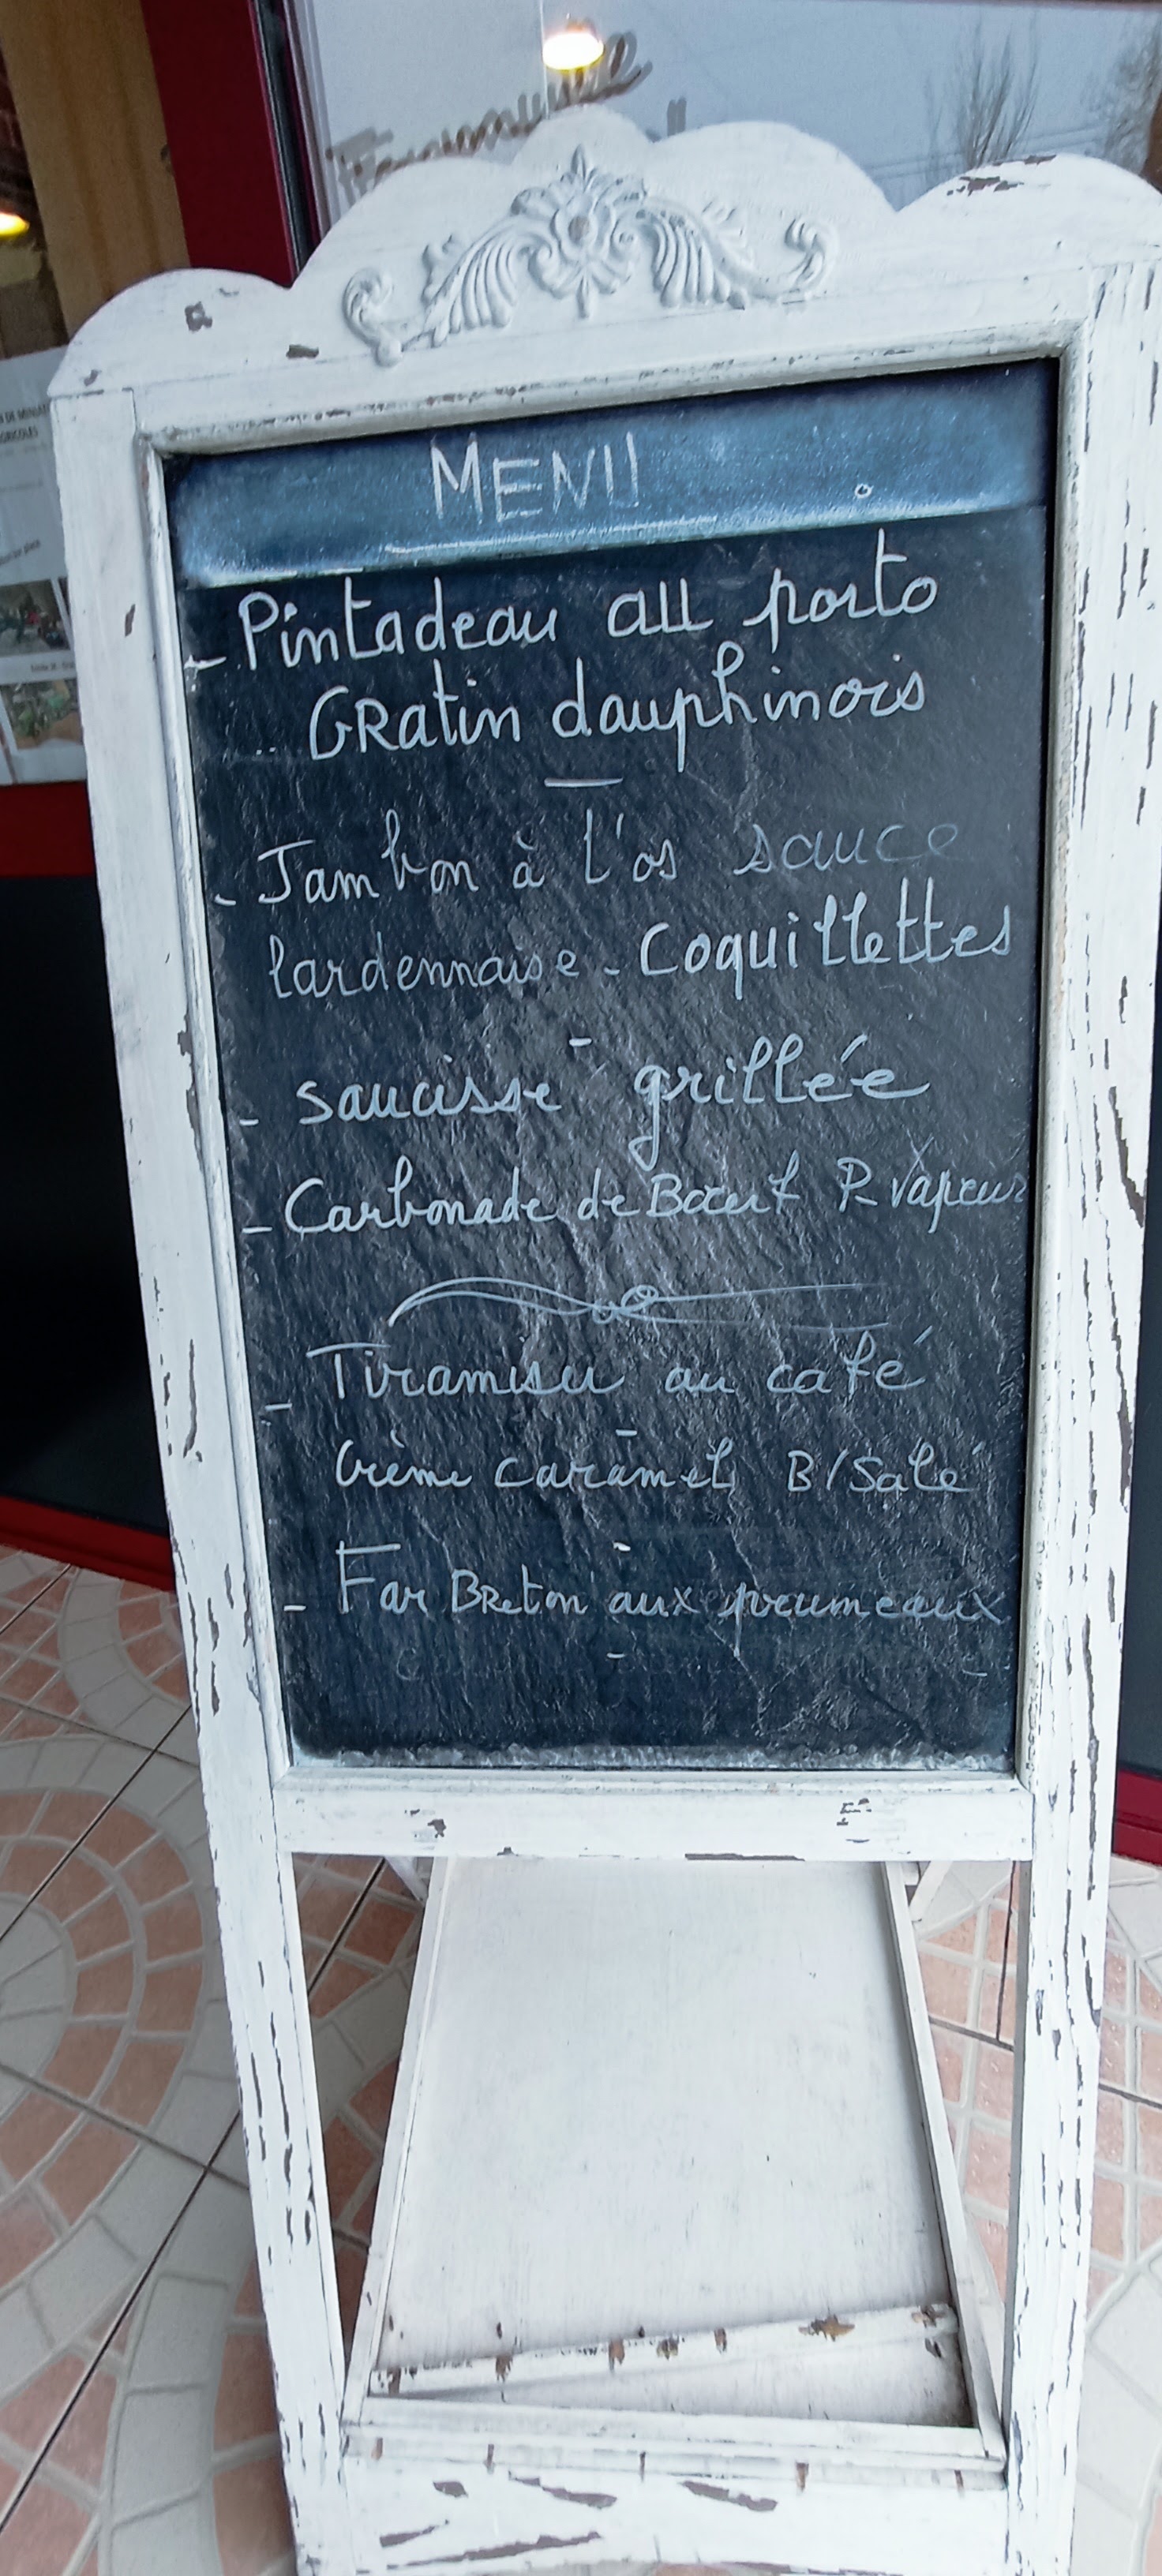 MENU
- Pintadeau au porto
GRatin dauphinois
- Jambon à l'os sauce
lardennaise - Coquillettes
- saucisse grillée
- Carbonade de Bœuf P. vapeur
- Tiramisu au café
Crème caramel B/Salé
- Far BReton aux prumeaux